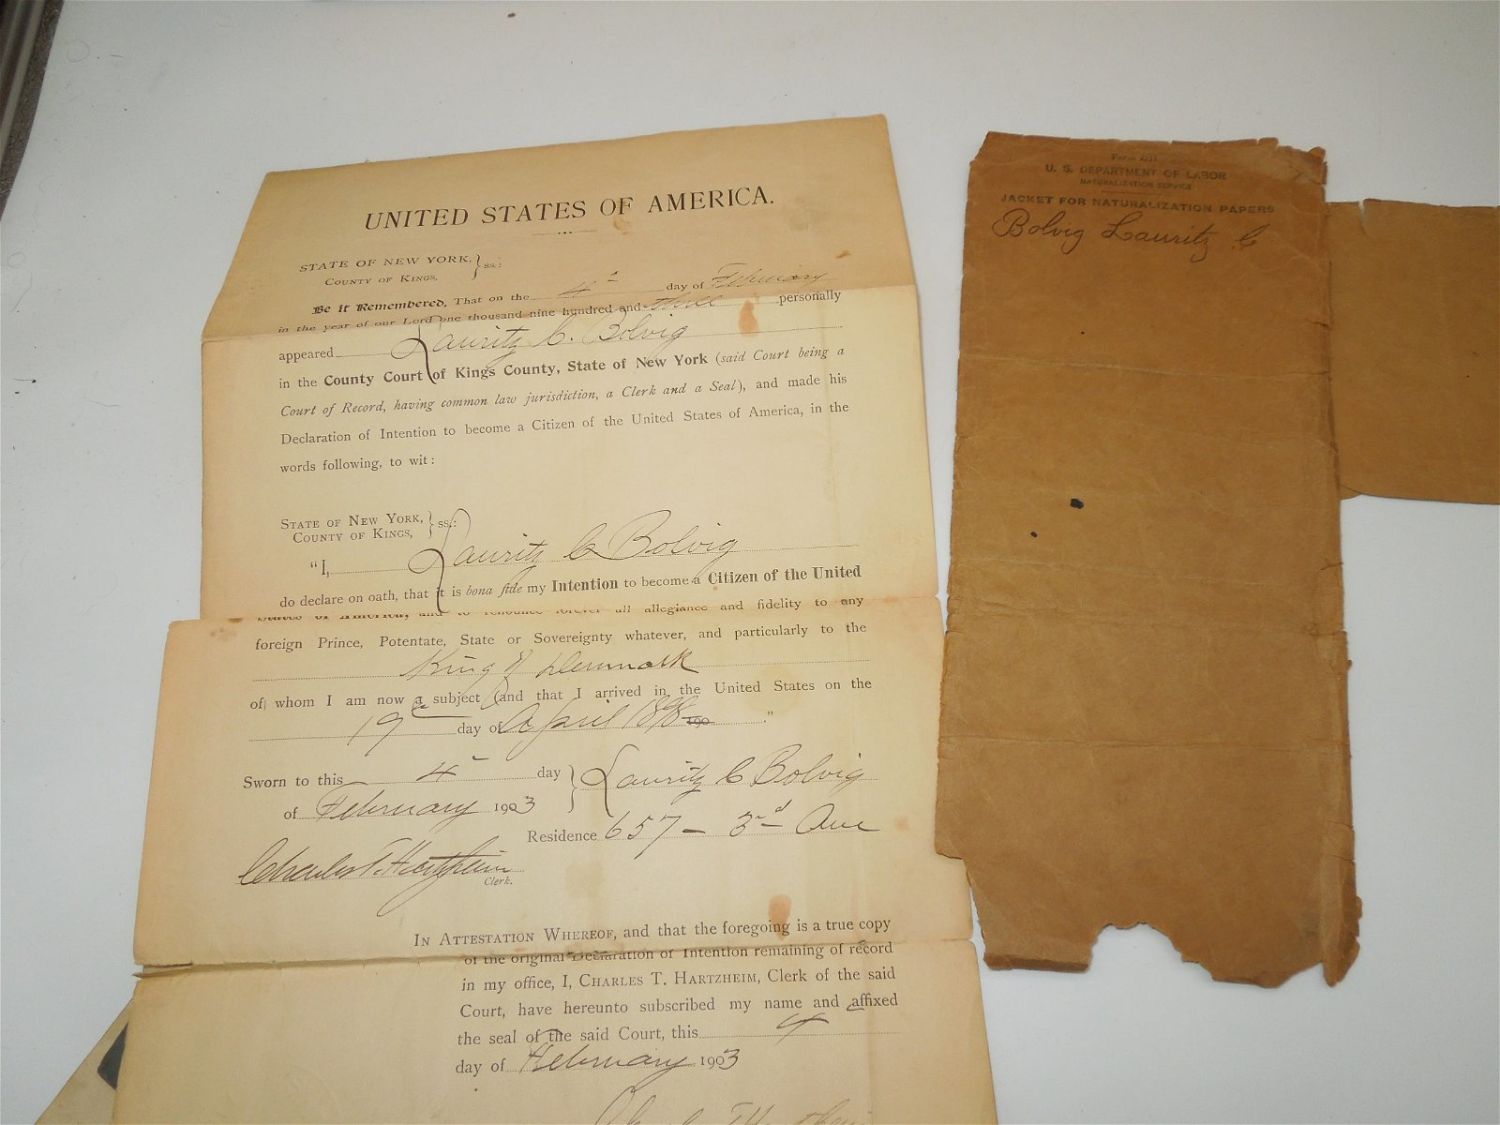 UNITED STATES OF AMERICA.
STATE OF NEW YORK, } ss.:
COUNTY OF KINGS,
Be it Remembered, That on the 4th day of February
in the year of our Lord one thousand nine hundred and three personally
appeared Lauritz C. Bolvig
in the County Court of Kings County, State of New York (said Court being a
Court of Record, having common law jurisdiction, a Clerk and a Seal), and made his
Declaration of Intention to become a Citizen of the United States of America, in the
words following, to wit:
STATE OF NEW YORK, } ss.:
COUNTY OF KINGS,
"I, Lauritz C Bolvig
do declare on oath, that it is bona fide my Intention to become a Citizen of the United
States of America, and to renounce forever all allegiance and fidelity to any
foreign Prince, Potentate, State or Sovereignty whatever, and particularly to the
King of Denmark
of whom I am now a subject and that I arrived in the United States on the
19th day of April 1898 190 ."
Sworn to this 4th day } Lauritz C Bolvig
of February 1903
Residence 657 - 3rd Ave
Charles T. Hartzheim
Clerk.
IN ATTESTATION WHEREOF, and that the foregoing is a true copy
of the original Declaration of Intention remaining of record
in my office, I, CHARLES T. HARTZHEIM, Clerk of the said
Court, have hereunto subscribed my name and affixed
the seal of the said Court, this 4
day of February 1903
Charles T Hartzheim
Form
U. S. DEPARTMENT OF LABOR
NATURALIZATION SERVICE
JACKET FOR NATURALIZATION PAPERS
Bolvig Lauritz C